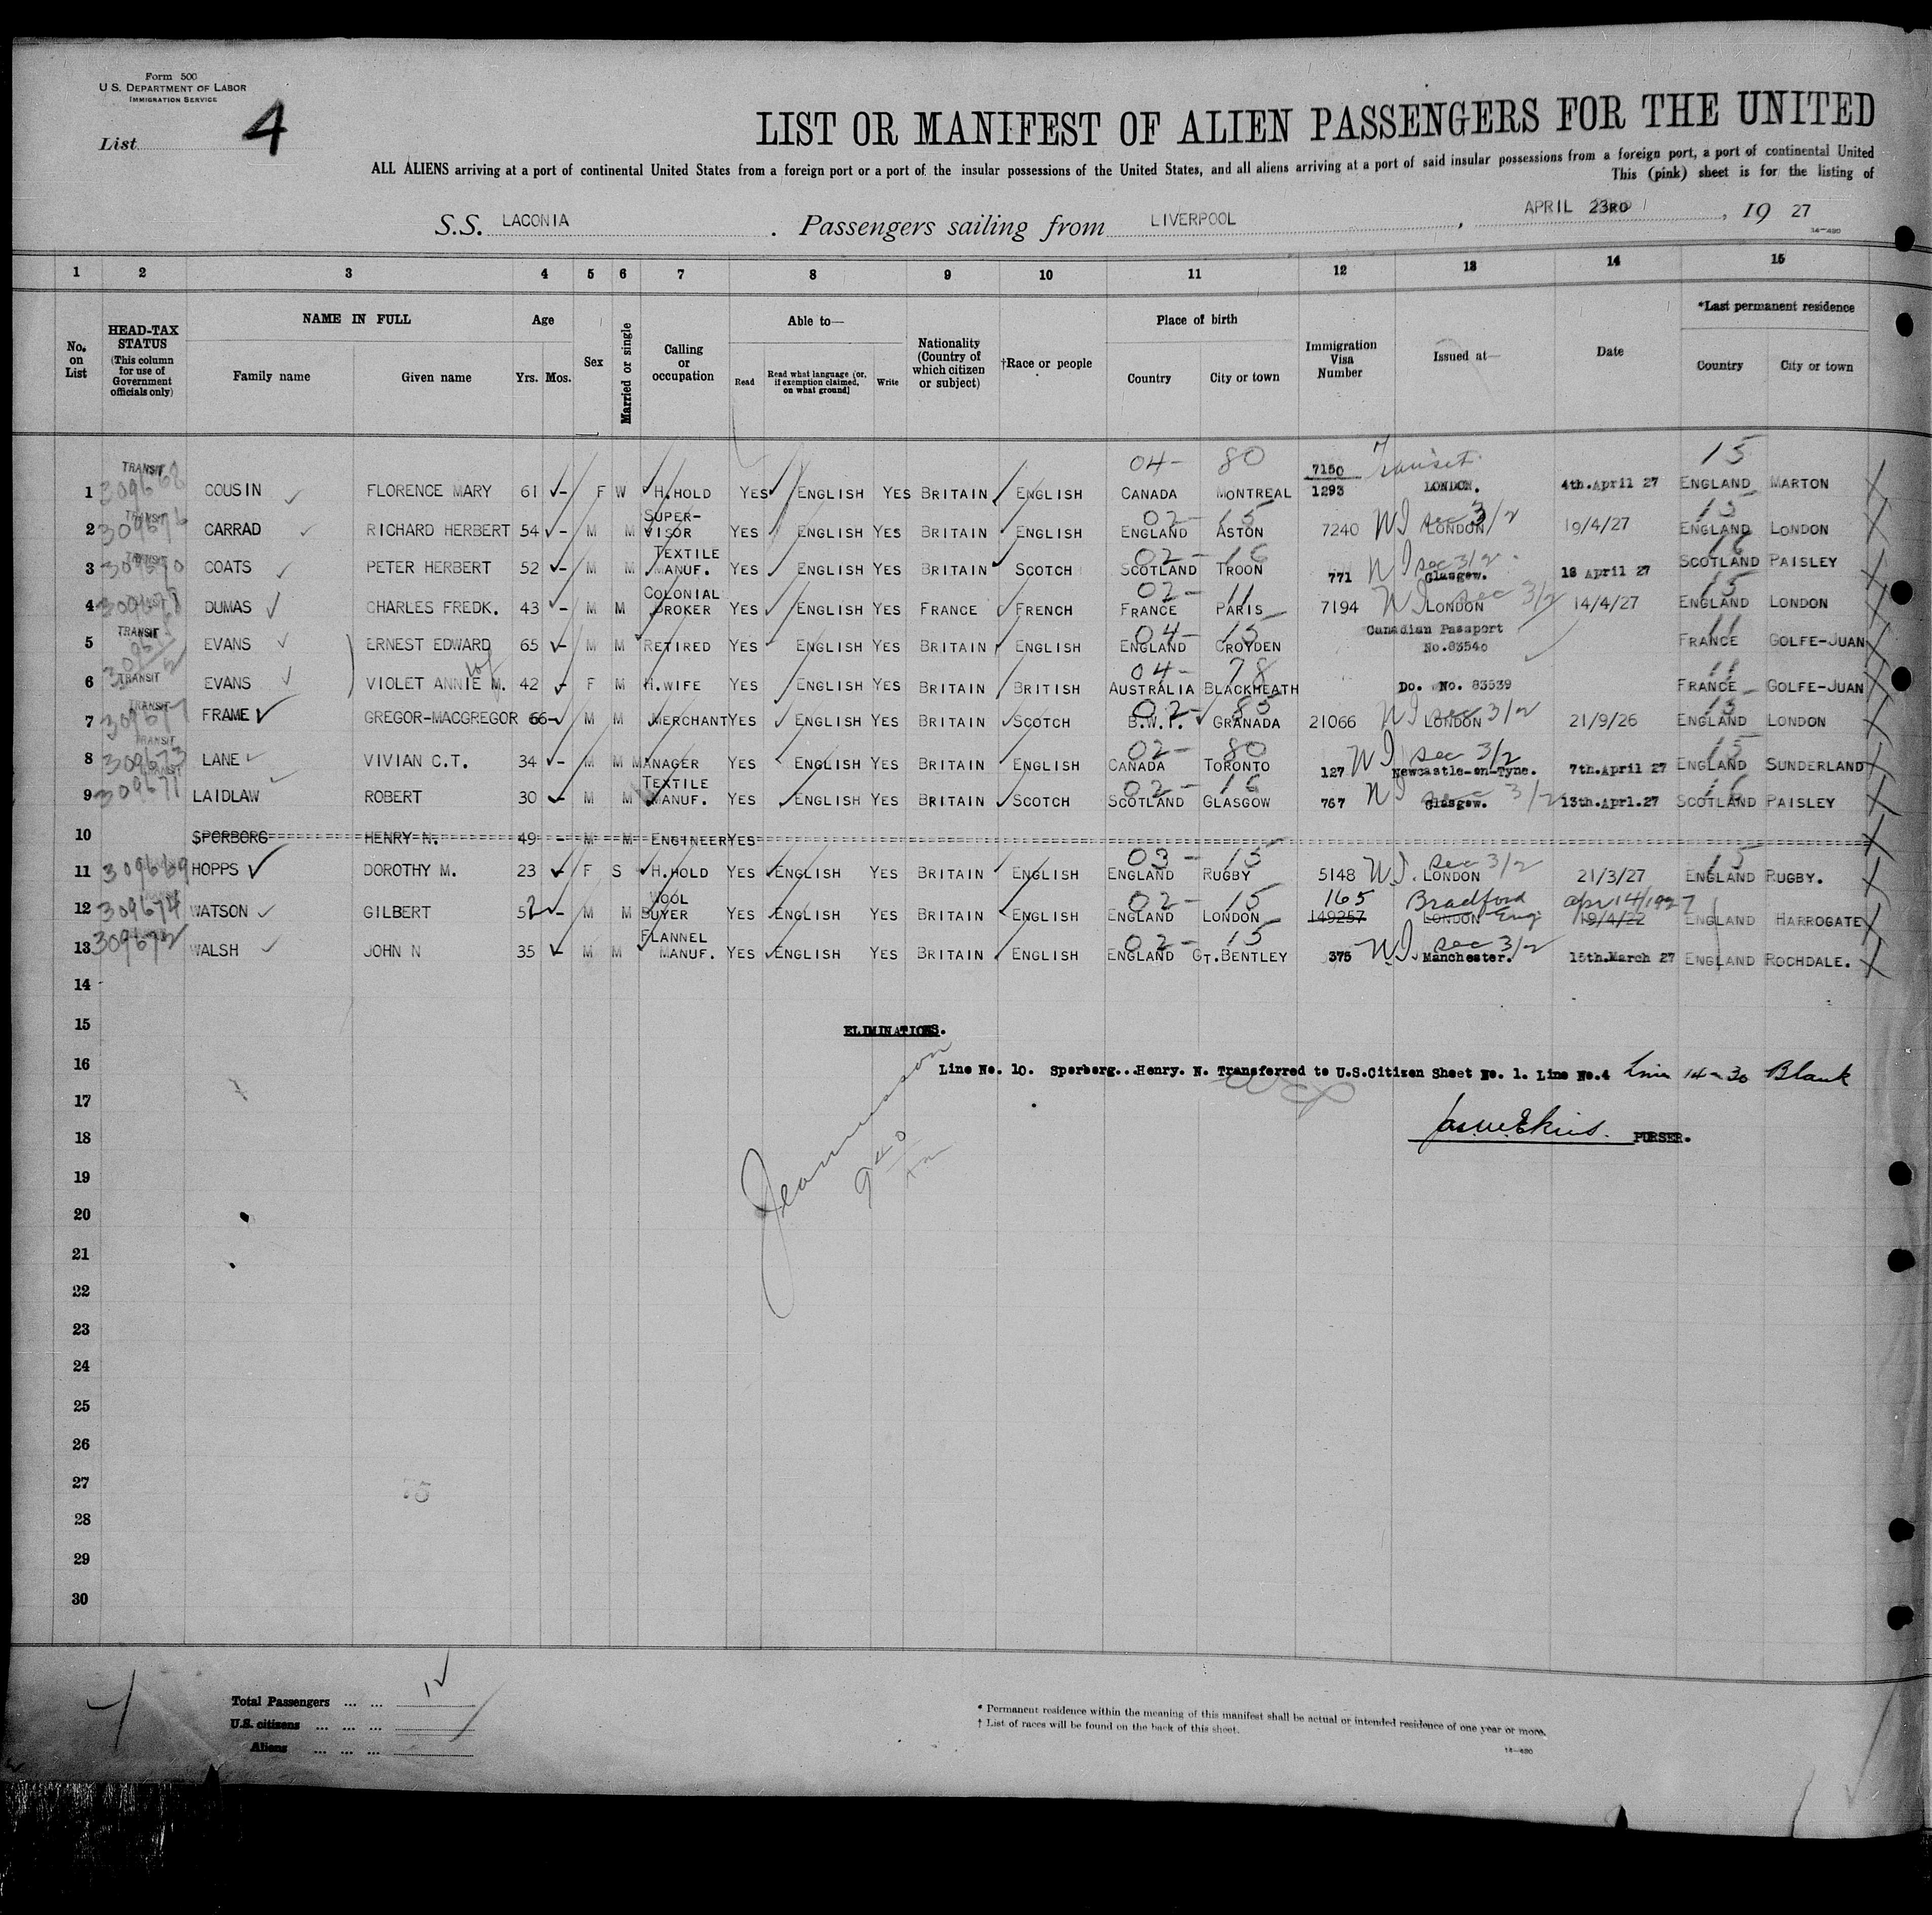 Form 500
U.S. DEPARTMENT OF LABOR
IMMIGRATION SERVICE
List 4
LIST OR MANIFEST OF ALIEN PASSENGERS FOR THE UNITED
ALL ALIENS arriving at a port of continental United States from a foreign port or a port of the insular possessions of the United States, and all aliens arriving at a port of said insular possessions from a foreign port, a port of continental United
This (pink) sheet is for the listing of
S.S. LACONIA . Passengers sailing from LIVERPOOL , APRIL 23RD , 19 27
14-420
1 2 3 4 5 6 7 8 9 10 11 12 13 14 15
No. on List
HEAD-TAX STATUS (This column for use of Government officials only)
NAME IN FULL
Family name Given name
Age
Yrs. Mos.
Sex
Married or single
Calling or occupation
Able to—
Read Read what language (or, if exemption claimed, on what ground) Write
Nationality (Country of which citizen or subject)
†Race or people
Place of birth
Country City or town
Immigration Visa Number
Issued at—
Date
*Last permanent residence
Country City or town
04- 80 7150 Transit 15
1 TRANSIT 309668 COUSIN FLORENCE MARY 61 - F W H.HOLD YES ENGLISH YES BRITAIN ENGLISH CANADA MONTREAL 1293 LONDON. 4th.April 27 ENGLAND MARTON
02- 15 15
2 TRANSIT 309676 CARRAD RICHARD HERBERT 54 - M M SUPER-VISOR YES ENGLISH YES BRITAIN ENGLISH ENGLAND ASTON 7240 LONDON sec 3/2 19/4/27 ENGLAND LONDON
02- 16 16
3 TRANSIT 309670 COATS PETER HERBERT 52 - M M TEXTILE MANUF. YES ENGLISH YES BRITAIN SCOTCH SCOTLAND TROON 771 Glasgow. sec 3/2 18 April 27 SCOTLAND PAISLEY
02- 11 15
4 309678 DUMAS CHARLES FREDK. 43 - M M COLONIAL BROKER YES ENGLISH YES FRANCE FRENCH FRANCE PARIS 7194 LONDON sec 3/2 14/4/27 ENGLAND LONDON
04- 15 11
5 TRANSIT EVANS ERNEST EDWARD 65 - M M RETIRED YES ENGLISH YES BRITAIN ENGLISH ENGLAND CROYDEN Canadian Passport No.83540 FRANCE GOLFE-JUAN
04- 78 11
6 TRANSIT EVANS VIOLET ANNIE M. 42 - F M H.WIFE YES ENGLISH YES BRITAIN BRITISH AUSTRALIA BLACKHEATH Do. No. 83539 FRANCE GOLFE-JUAN
02- 85 15
7 TRANSIT 309677 FRAME GREGOR-MACGREGOR 66- M M MERCHANT YES ENGLISH YES BRITAIN SCOTCH B.W.I. GRANADA 21066 LONDON sec 3/2 21/9/26 ENGLAND LONDON
02- 80 15
8 TRANSIT 309673 LANE VIVIAN C.T. 34 - M M MANAGER YES ENGLISH YES BRITAIN ENGLISH CANADA TORONTO 127 Newcastle-on-Tyne. sec 3/2 7th.April 27 ENGLAND SUNDERLAND
02- 16 16
9 TRANSIT 309671 LAIDLAW ROBERT 30 - M M TEXTILE MANUF. YES ENGLISH YES BRITAIN SCOTCH SCOTLAND GLASGOW 767 Glasgow. sec 3/2 13th.Aprl.27 SCOTLAND PAISLEY
10 SPORBORG HENRY N. 49 - M M ENGINEER YES
03- 15 15
11 309669 HOPPS DOROTHY M. 23 - F S H.HOLD YES ENGLISH YES BRITAIN ENGLISH ENGLAND RUGBY 5148 LONDON sec 3/2 21/3/27 ENGLAND RUGBY.
02- 15 165 Bradford Eng. Apr 14/1927
12 309674 WATSON GILBERT 52 - M M WOOL BUYER YES ENGLISH YES BRITAIN ENGLISH ENGLAND LONDON 149257 LONDON 19/4/22 ENGLAND HARROGATE
02- 15
13 309672 WALSH JOHN N 35 - M M FLANNEL MANUF. YES ENGLISH YES BRITAIN ENGLISH ENGLAND GT.BENTLEY 375 Manchester. sec 3/2 15th.March 27 ENGLAND ROCHDALE.
14
15 ELIMINATIONS.
16 Line No. 10. Sporberg...Henry. N. Transferred to U.S.Citizen Sheet No. 1. Line No.4 Line 14-30 Blank
17
18 PURSER.
19
20
21
22
23
24
25
26
27
28
29
30
Total Passengers ... ... 12
U.S. citizens ... ... ...
Aliens ... ... ...
* Permanent residence within the meaning of this manifest shall be actual or intended residence of one year or more.
† List of races will be found on the back of this sheet.
14-420